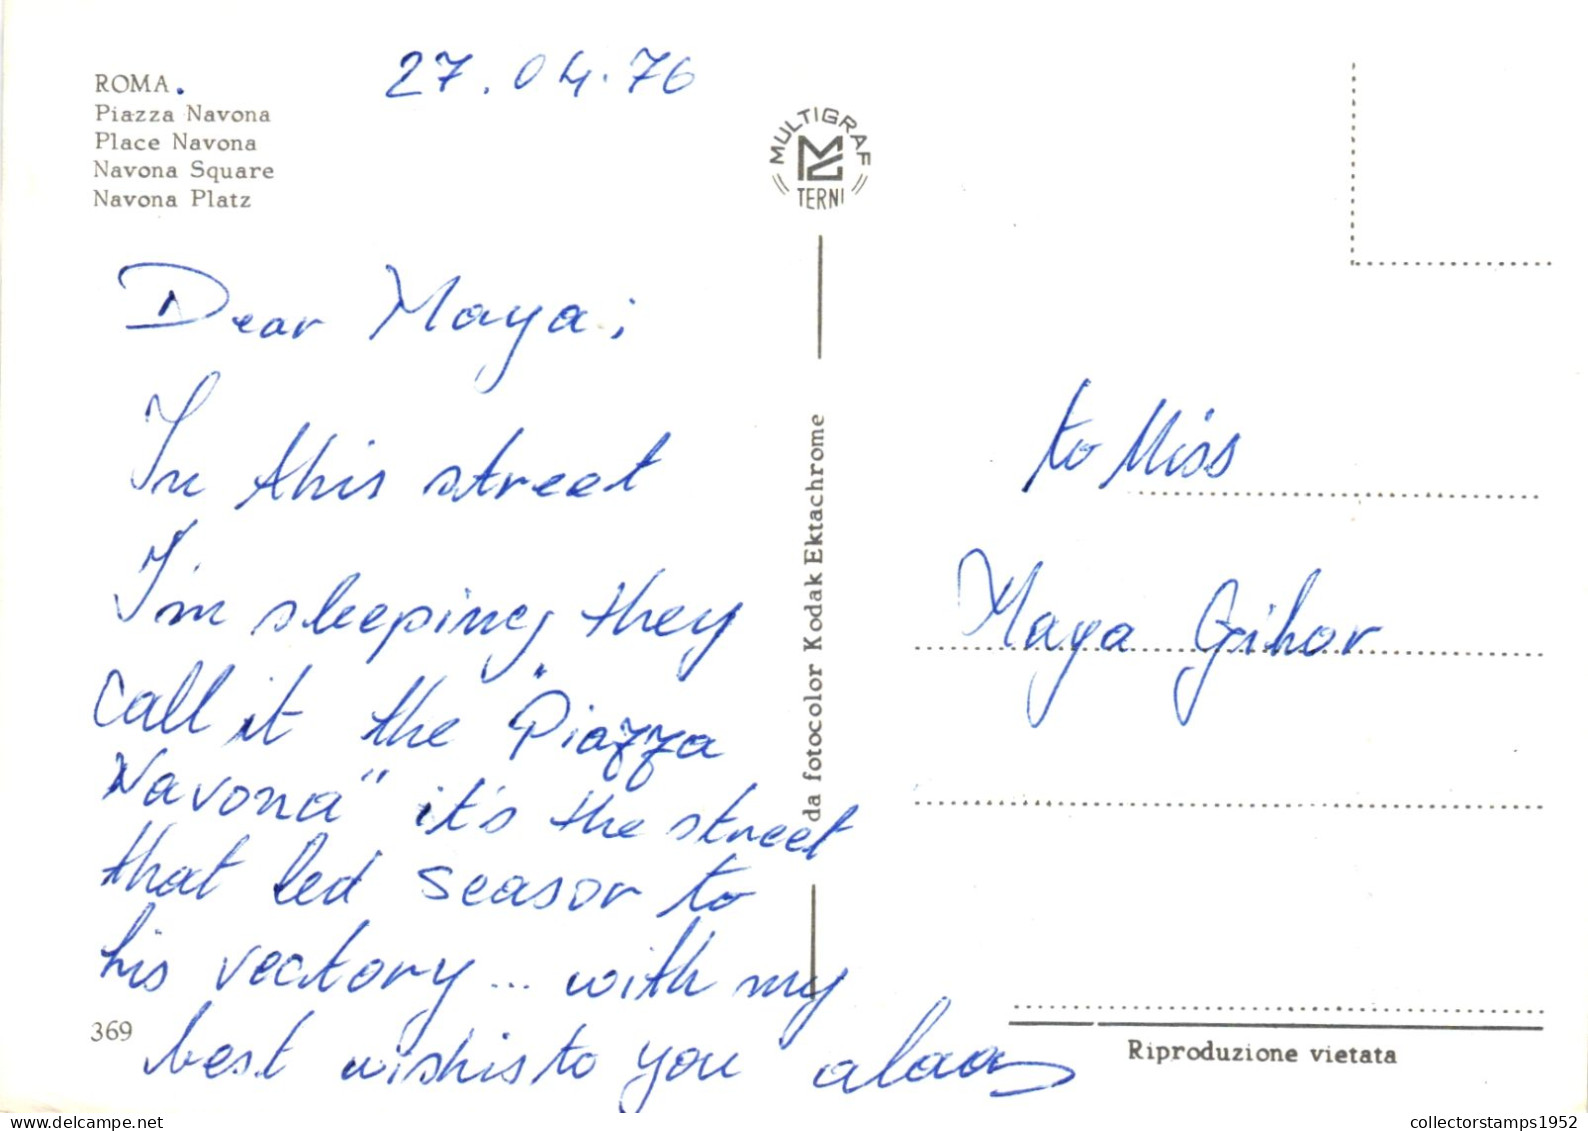 ROMA.
Piazza Navona
Place Navona
Navona Square
Navona Platz
27.04.76
MULTIGRAF
TERNI
Dear Maya;
In this street
I'm sleeping they
call it the "Piazza
Navona" it's the street
that led seasor to
his vectory... with my
best wishis to you alaa
369
da fotocolor Kodak Ektachrome
to Miss
Maya Gihor
Riproduzione vietata
collectorstamps1952